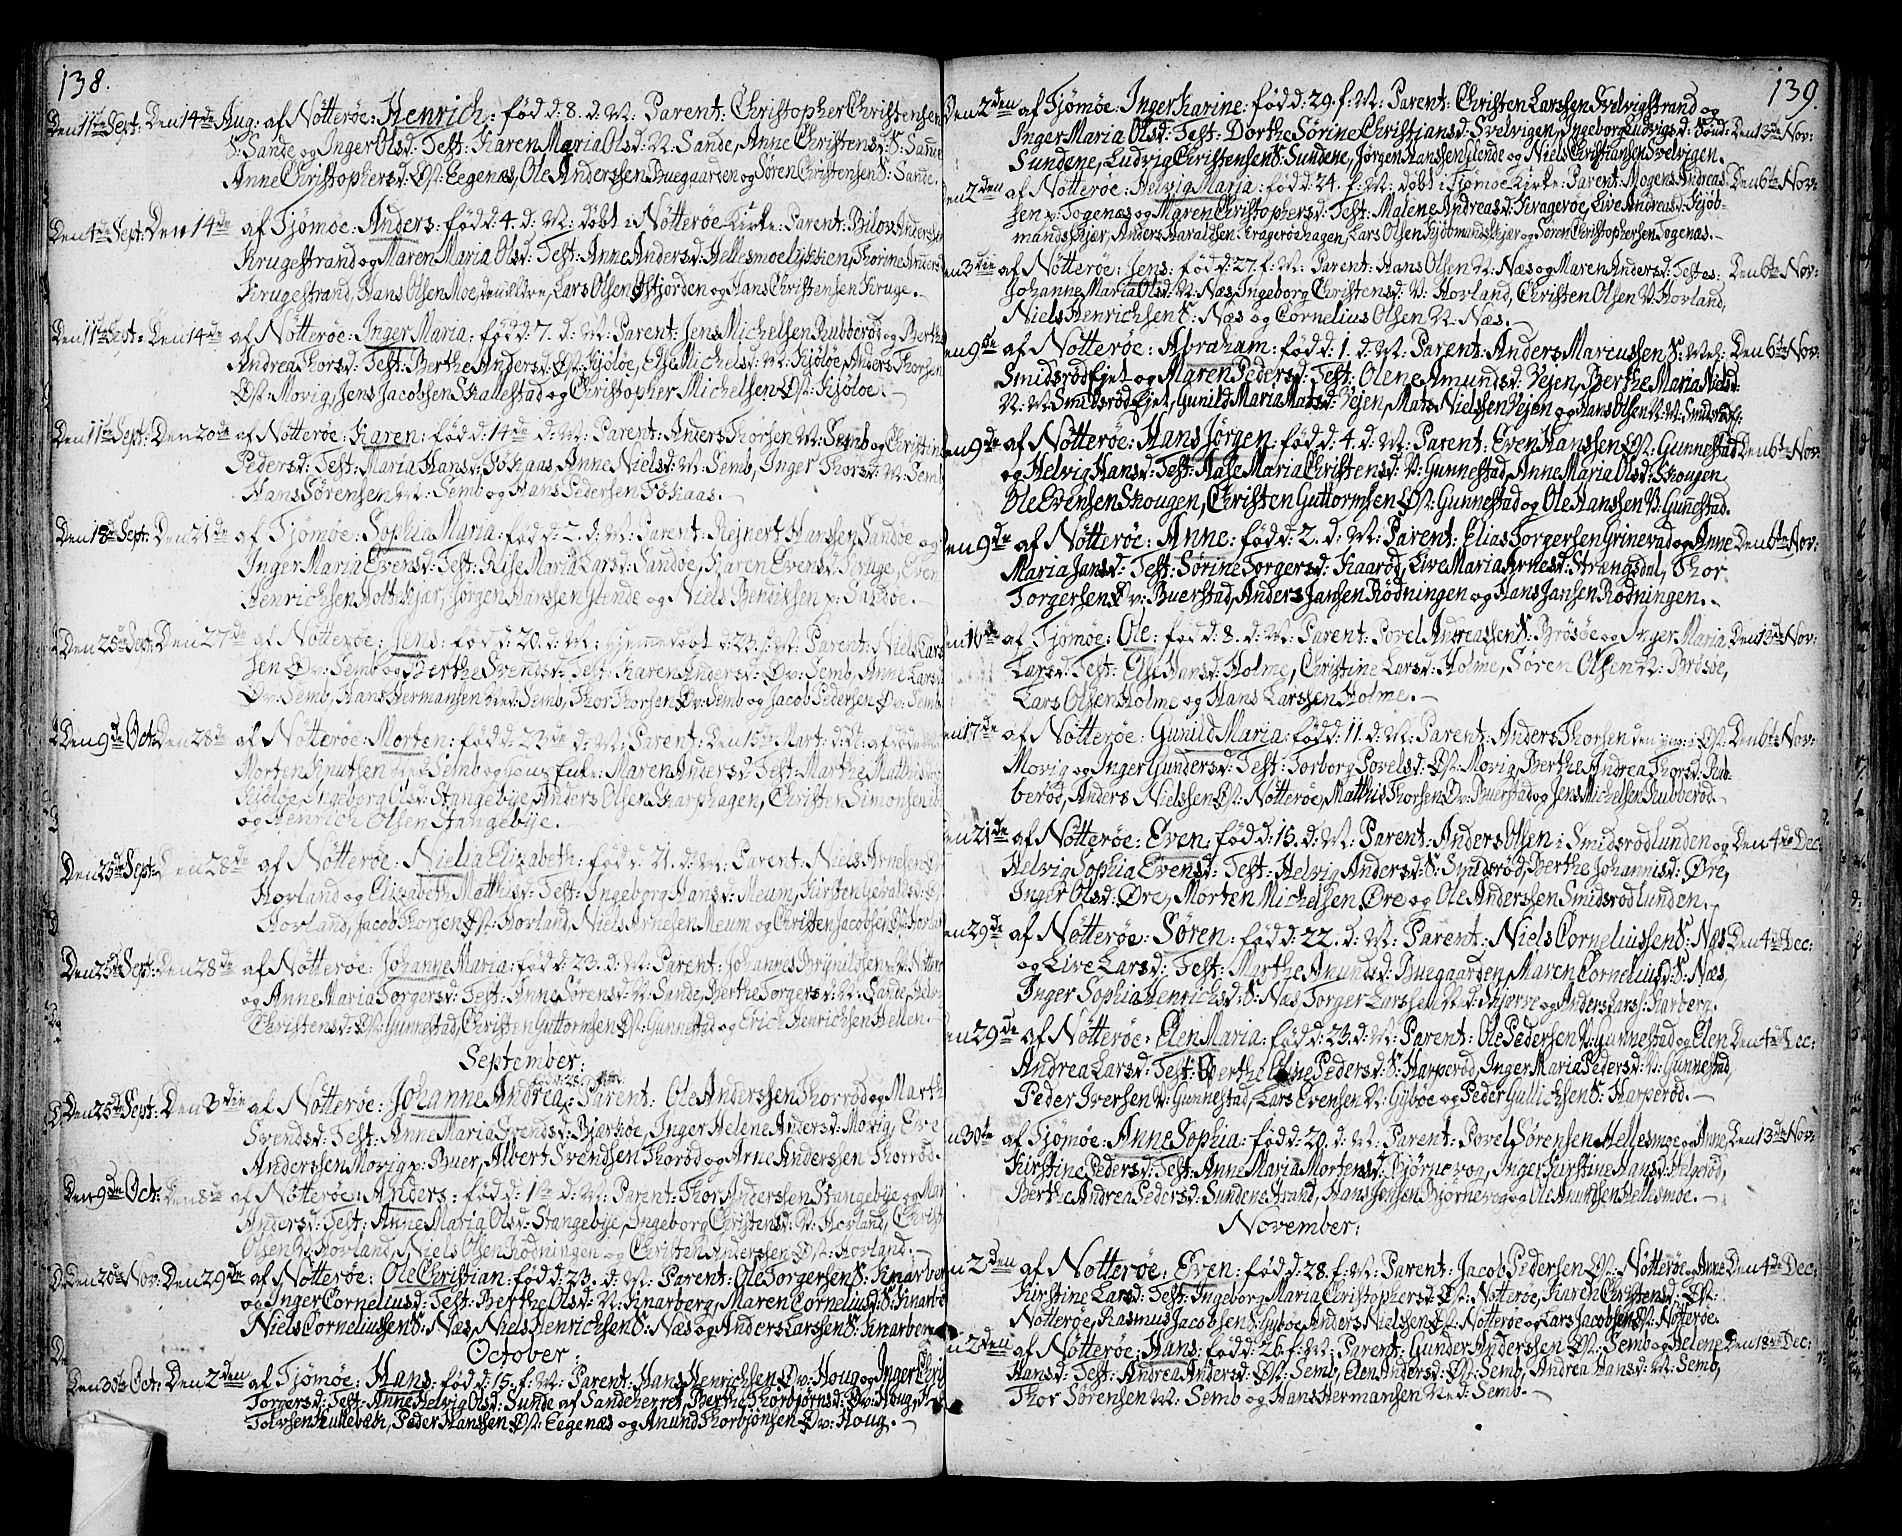 138.
Den 11te Sept: Den 14de Aug: af Nötteröe: Henrich: född: 8. d: M: Parent: Christopher Christensen
S: Sande og Inger Olsd: Test: Karen Maria Olsd: N: Sande, Anne Christensd: S: Sande
Anne Christophersd: Øst: Eegenæs, Ole Anderssen Buegaarden og Sören Christensen S: Sande.
Den 4de Sept: Den 14de af Tjömöe: Anders: född: 4. d: M: döbt i Nötteröe Kirke: Parent: Anderssen
Krugestrand og Maren Maria Olsd: Test: Anne Andersd: Hellesmoe, Thorine Andersd
Krugestrand, Hans Olsen Moe, den ældre, Lars Olsen Østjorden og Hans Christensen Kruge. -
Den 11te Sept: Den 14de af Nötteröe: Inger Maria: född: 7. d: M: Parent: Jens Michelsen Rubberöd og Berthe
Andrea Thorsd: Test: Berthe Andersd: Øst: Kjölöe, Else Michelsd: N: Kjölöe, Anders Thorsen
Øst: Movig, Jens Jacobsen Skallestad og Christopher Michelsen Øst: Kjölöe. -
Den 11te Sept: Den 20de af Nötteröe: Karen: född: 14de d: M: Parent: Anders Thorsen N: Semb og Christine
Pedersd: Test: Maria Hansd: Föskaas, Anne Nielsd: N: Semb, Inger Thorsd: N: Semb
Hans Sörensen N: Semb og Hans Pedersen Föskaas. -
Den 18de Sept: Den 21de af Tjömöe: Sophia Maria: född: 2. d: M: Parent: Rejnert Hanssen Sandöe og
Inger Maria Evensd: Test: Rise Maria Larsd: Sandöe, Karen Evensd: Kruge, Even
Henrichsen Holtekjær, Jörgen Hanssen Glende og Niels Bentsen Sandöe.
Den 25de Sept: Den 27de af Nötteröe: Jens: född: 20. d: M: hjemmedöbt d: 23. Parent: Niels Lars
sen Øv: Semb og Berthe Svendsd: Test: Karen Andersd: Øv: Semb, Anne Larsd
Øv: Semb, Hans Hermansen Semb, Thor Thorsen Øv: Semb og Jacob Pedersen Øv: Semb
Den 9de Oct: Den 28de af Nötteröe: Morten: född: 23de d: M: Parent: Den 15de Mart: d: A: afdöde
Morten Knutsen Semb og hans Enke: Maren Andersd: Test: Marthe Matthisd:
Kjölöe, Ingeborg Olsd: Stangebÿe, Anders Olsen Skarphagen, Christen Simonsen
og Henrich Olsen Stangebÿe.
Den 25de Sept: Den 28de af Nötteröe: Nielia Elizabeth: född: 21. d: M: Parent: Niels Arnesen
Hovland og Elizabeth Matthisd: Test: Ingeborg Hansd: Meum, Kirsten
Hovland, Jacob Thorsen Øst: Hovland, Niels Arnesen Meum og Christen Jacobsen Øst: Hovland
Den 25de Sept: Den 28de af Nötteröe: Johanne Maria: född: 23. d: M: Parent: Johannes Brÿnilsen
og Anne Maria Torgersd: Test: Anne Sörensd: N: Sande, Berthe Torgersd: N: Sande, Helvig
Christensd: Øst: Gunnestad, Christen Guttormsen Øst: Gunnestad og Erich Henrichsen Hellen. -
September:
Den 25de Sept: Den 3die af Nötteröe: Johanne Andrea: Parent: Ole Anderssen Thorröd og Marthe
Svendsd: Test: Anne Maria Svendsd: Bjærköe, Inger Helene Andersd: Movig, Even
Anderssen Movig Buer, Albert Svendsen Thoröd og Arne Anderssen Thorröd.
Den 9de Oct: Den 8de af Nötteröe: Anders: född: 1te d: M: Parent: Thor Anderssen Stangebÿe og Mar
Andersd: Test: Anne Maria Olsd: Stangebÿe, Ingeborg Christensd: V: Hovland, Christen
Olsen V: Hovland, Niels Olsen Rödningen og Christen Anderssen Øst: Hovland. -
Den 20de Nov: Den 29de af Nötteröe: Ole Christian: född: 23. d: M: Parent: Ole Torgersen S: Knarberg
og Inger Corneliusd: Test: Berthe Olsd: N: Knarberg, Maren Corneliusd: S: Knarberg
Niels Corneliussen S: Næs, Niels Henrichsen S: Næs og Anders Larssen S: Knarberg
October:
Den 30te Oct: Den 2den af Tjömöe: Hans: född: 15. f: M: Parent: Hans Henrichsen Øv: Houg og Inger Chris
Torgersd: Test: Anne Helvig Olsd: Sunde af Sandeherret, Berthe Thorbjörnsd: Øv: Houg,
Tolvsen Kullebæk, Peder Hanssen Øst: Eegenæs og Anund Thorbjörnsen Øv: Houg. -
139.
Den 2den af Tjömöe: Inger Karine: född: 29. f: M: Parent: Christen Larssen Svelvigstrand og
Inger Maria Olsd: Test: Dorthe Sörine Christiansd: Svelvigen, Ingeborg Ludvigsd: Sönd: Den 13de Nov:
Sundene, Ludvig Christensen S: Sundene, Jörgen Hanssen Glende og Niels Christiansen Svelvigen.
den 2den af Nötteröe: Helvig Maria: född: 24. f: M: döbt i Tjömöe Kirke: Parent: Mogens Andreas Den 6te Nov:
sen Togenæs og Maren Christophersd: Test: Malene Andreasd: Krageröe, Live Andreasd: Kjöb-
mandskjær, Anders Haraldsen Krageröehagen, Lars Olsen Kjöbmandskjær og Sören Christophersen Togenæs. -
en 3die af Nötteröe: Jens: född: 27. f: M: Parent: Hans Olsen N: Næs og Maren Andersd: Testes: Den 6te Nov:
Johanne Maria Olsd: N: Næs, Ingeborg Christensd: V: Hovland, Christen Olsen V: Hovland,
Niels Henrichsen S: Næs og Cornelius Olsen N: Næs. -
en 9de af Nötteröe: Abraham: född: 1. d: M: Parent: Anders Mariussen S: Den 6te Nov:
Smidsröd Ejet og Maren Pedersd: Test: Olene Amundsd: Vejen, Berthe Maria Nielsd:
N: Smidsröd Ejet, Gunild Maria Matsd: Vejen, Mats Nielssen Vejen og Hans Olsen
en 9de af Nötteröe: Hans Jörgen: född: 4. d: M: Parent: Even Hanssen Øst: Gunnestad Den 6te Nov:
og Helvig Hansd: Test: Aase Maria Christensd: V: Gunnestad, Anne Maria Olsd: Skougen
Ole Evensen Skougen, Christen Guttormsen Øst: Gunnestad og Ole Hanssen V: Gunnestad.
en 9de af Nötteröe: Anne: född: 2. d: M: Parent: Elias Torgersen Grinevad og Anne Den 6te Nov:
Maria Jansd: Test: Sörine Torgersd: Kaaröd, Live Maria Arnesd: Strængsdal, Thor
Torgersen Øv: Buerstad, Anders Jansen Rödningen og Hans Jansen Rödningen. -
en 16de af Tjömöe: Ole: född: 8. d: M: Parent: Povel Andreassen S: Brösöe og Inger Maria Den 13de Nov:
Larsd: Test: Else Hansd: Holme, Christine Larsd: Holme, Sören Olsen N: Brösöe,
Lars Olsen Holme og Hans Larssen Holme. -
en 17de af Nötteröe: Gunild Maria: född: 11. d: M: Parent: Anders Thorsen den yng: Øst: Den 6te Nov:
Movig og Inger Gundersd: Test: Torborg Povelsd: Øst: Movig, Berthe Andrea Thorsd: Rub-
beröd, Anders Nielssen Øst: Nötteröe, Matthis Thorsen Øv: Buerstad og Jens Michelsen Rubberöd.
en 21de af Nötteröe: Even: född: 15. d: M: Parent: Anders Olsen i Smidsrödlunden og Den 4de Dec:
Helvig Sophia Evensd: Test: Helvig Andersd: S: Smidsröd, Berthe Johannisd: Øre,
Inger Olsd: Øre, Morten Michelsen Øre og Ole Anderssen Smidsrödlunden. -
en 29de af Nötteröe: Sören: född: 22. d: M: Parent: Niels Corneliussen S: Næs Den 4de Dec:
og Live Larsd: Test: Marthe Anundsd: Buegaarden, Maren Corneliusd: S: Næs,
Inger Sophia Henrichsd: S: Næs Torger Larssen Skjerve og Anders Larss: Knarberg.
en 29de af Nötteröe: Elen Maria: född: 23. d: M: Parent: Ole Pedersen V: Gunnestad og Elen Den 4de Dec:
Andrea Larsd: Test: Berthe Pedersd: S: Harperöd, Inger Maria Pedersd: V: Gunnestad,
Peder Iversen V: Gunnestad, Lars Evensen N: Gÿböe og Peder Gullichsen S: Harperöd. -
en 30te af Tjömöe: Anne Sophia: född: 20. d: M: Parent: Povel Sörensen Hellesmoe og Anne Den 13de Nov:
Kirstine Pedersd: Test: Anne Maria Mortensd: Björnevog, Inger Kirstine Hansd: Helgeröd,
Berthe Andrea Pedersd: Sundene Strand, Hans Jensen Björnevog og Ole Knutsen Hellesmoe. -
November:
n 2den af Nötteröe: Even: född: 28. f: M: Parent: Jacob Pedersen Øst: Nötteröe og Anne Den 4de Dec:
Kirstine Larsd: Test: Ingeborg Maria Christophersd: Øst: Nötteröe, Karen Christensd: Øst:
Nötteröe, Rasmus Jacobsen Gÿböe Anders Nielssen Øst: Nötteröe og Lars Jacobsen Øst: Nötteröe.
n 2den af Nötteröe: Hans: född: 26. f: M: Parent: Gunder Anderssen Øst: Semb og Helene Den 18de Dec:
Hansd: Test: Andrea Andersd: Øst: Semb, Elen Andersd: Øst: Semb, Andrea Hansd: N: Semb,
Thor Sörensen N: Semb og Hans Hermansen Ned: Semb. -